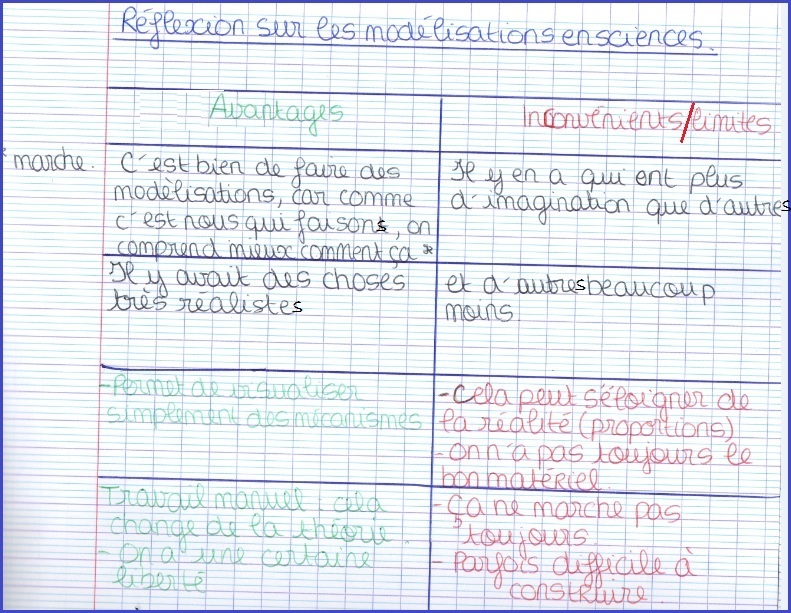 Réflexion sur les modélisations en sciences.
Avantages
Inconvénients/limites
C'est bien de faire des
modèlisations, car comme
c'est nous qui faisons, on
comprend mieux comment ça *
* marche.
Il y en a qui ont plus
d'imagination que d'autres
Il y avait des choses
très réalistes
et d'autres beaucoup
moins
- Permet de visualiser
simplement des mécanismes
- Cela peut s'éloigner de
la réalité (proportions)
- on n'a pas toujours le
bon matériel.
Travail manuel : cela
change de la théorie.
- On a une certaine
liberté
- Ça ne marche pas
toujours.
- Parfois difficile à
construire.